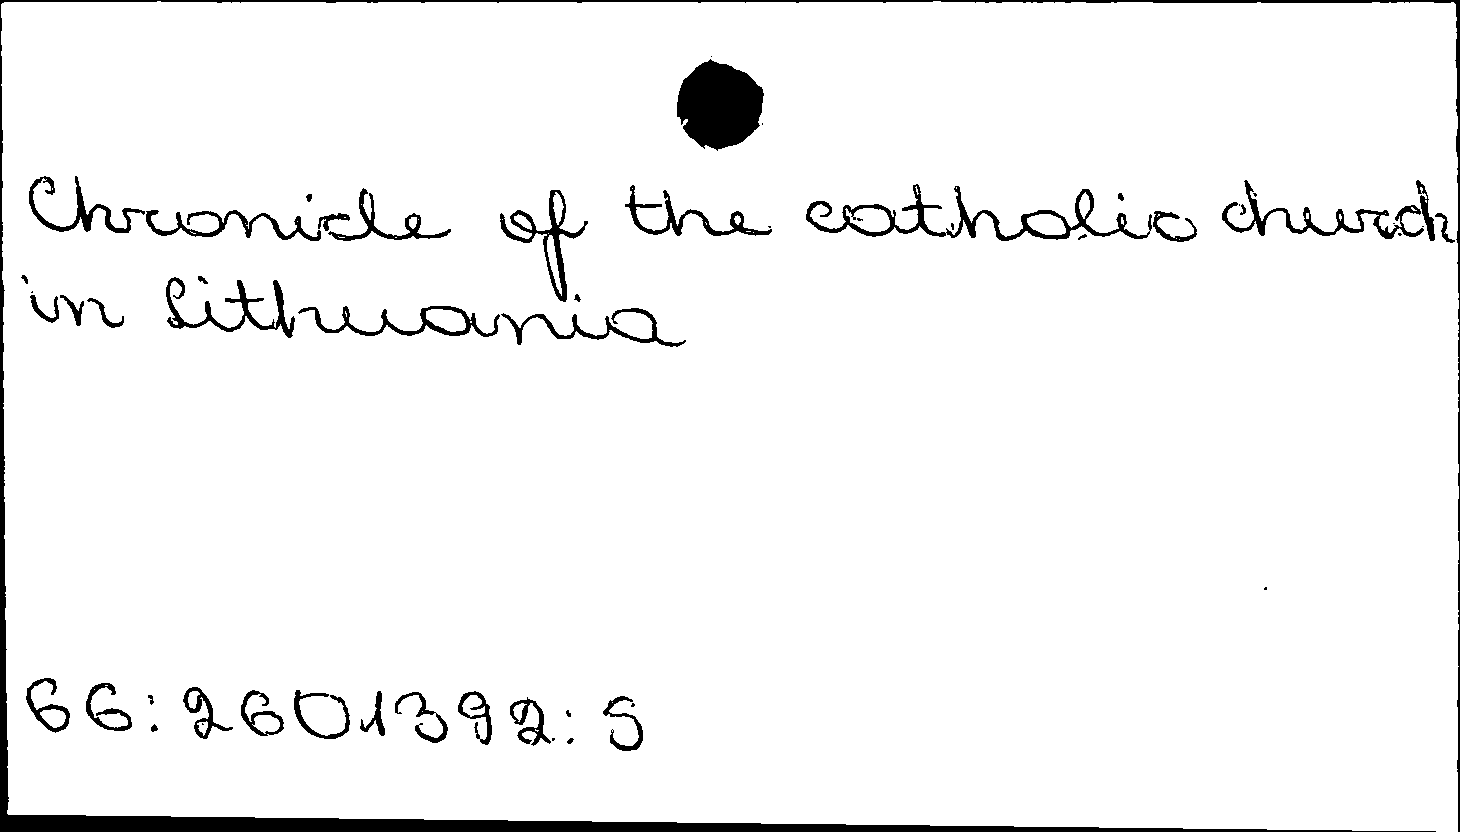 Chronicle of the catholic church
in Lithuania
66:2601392:S